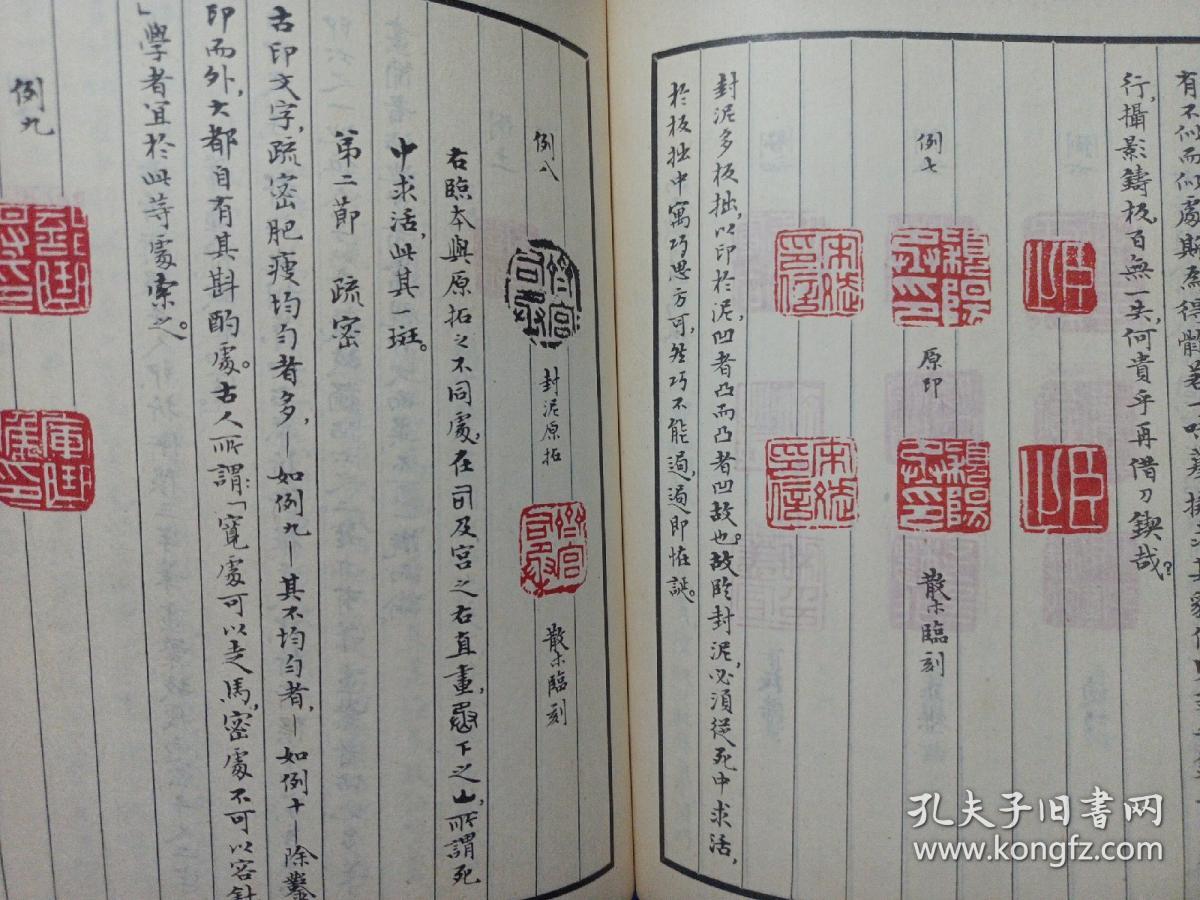 有不似而似處斯為得
行,攝影鑄板,百無一失,何貴乎再借刀鍥哉?
原印
散木臨刻
例七
封泥多板拙,以印於泥,凹者凸而凸者凹故也。故臨封泥,必須從死中求活,
於板拙中寓巧思方可,然巧不能過,過即怪誕。
例八
封泥原拓
散木臨刻
右臨本與原拓之不同處,在司及宮之右直畫,下之山,所謂死
中求活,此其一斑。
第二節 疏密
古印文字,疏密肥瘦均勻者多,—如例九—其不均勻者,—如例十—除鑿
印而外,大都自有其斟酌處。古人所謂:「寬處可以走馬,密處不可以容針
」學者宜於此等處索之。
例九
孔夫子旧书网
www.kongfz.com